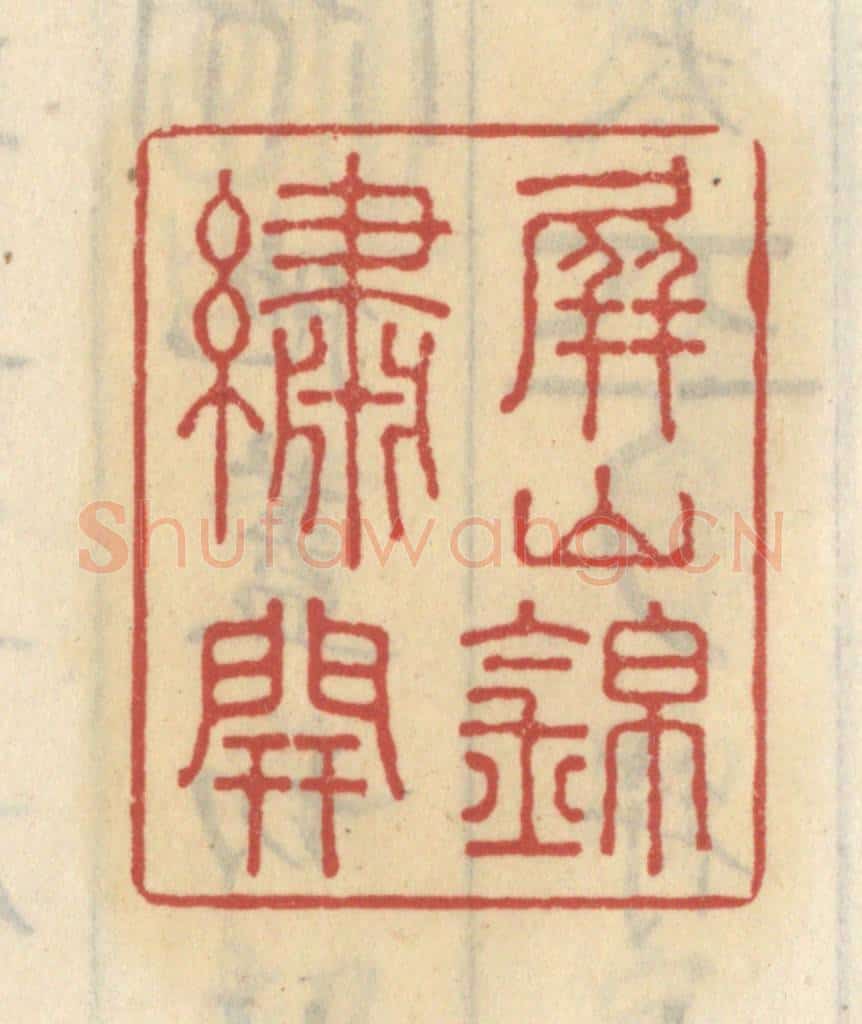 屏山錦
繡開
Shufawang.CN